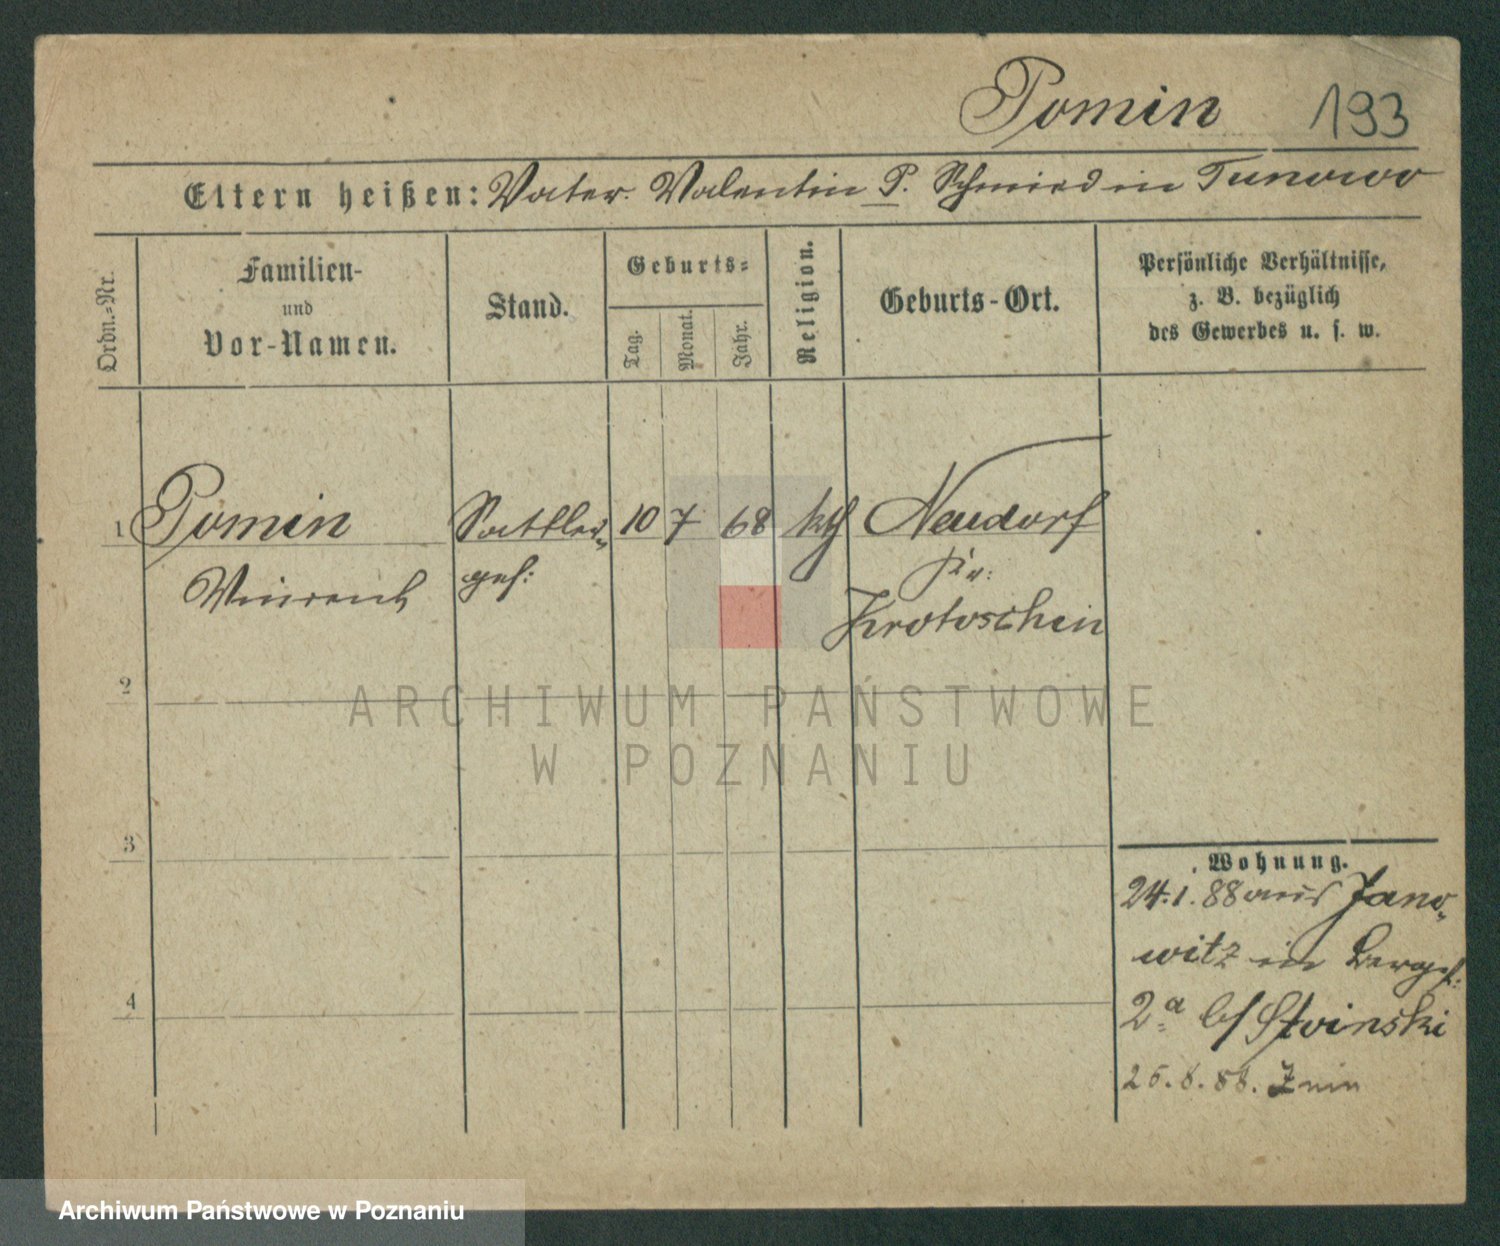 Pomin 193
Eltern heißen: Vater Valentin P. Schmied in Tunowo
Ordn.-Nr.
Familien-
und
Vor-Namen.
Stand.
Geburts-
Tag.
Monat.
Jahr.
Religion.
Geburts-Ort.
Persönliche Verhältnisse,
z. B. bezüglich
des Gewerbes u. s. w.
1 Pomin Sattler- 10 7 68 kth Neudorf
ges:
Kr:
Krotoschin
2
3
4
Wohnung.
24.1.88 aus Jano-
witz in Bergst:
2a bei Stoinski
25.6.88. Znin
ARCHIWUM PAŃSTWOWE
W POZNANIU
Archiwum Państwowe w Poznaniu